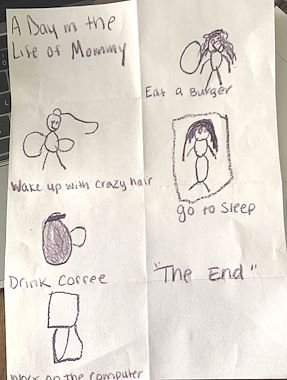 A Day in the
Life of Mommy
Wake up with crazy hair
Drink Coffee
Work on the computer
Eat a Burger
go to sleep
"The End"